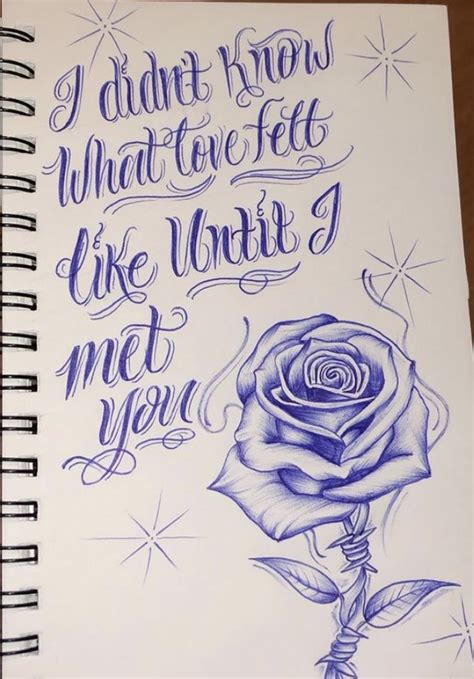 I didn't Know
What love felt
like Until I
met
you